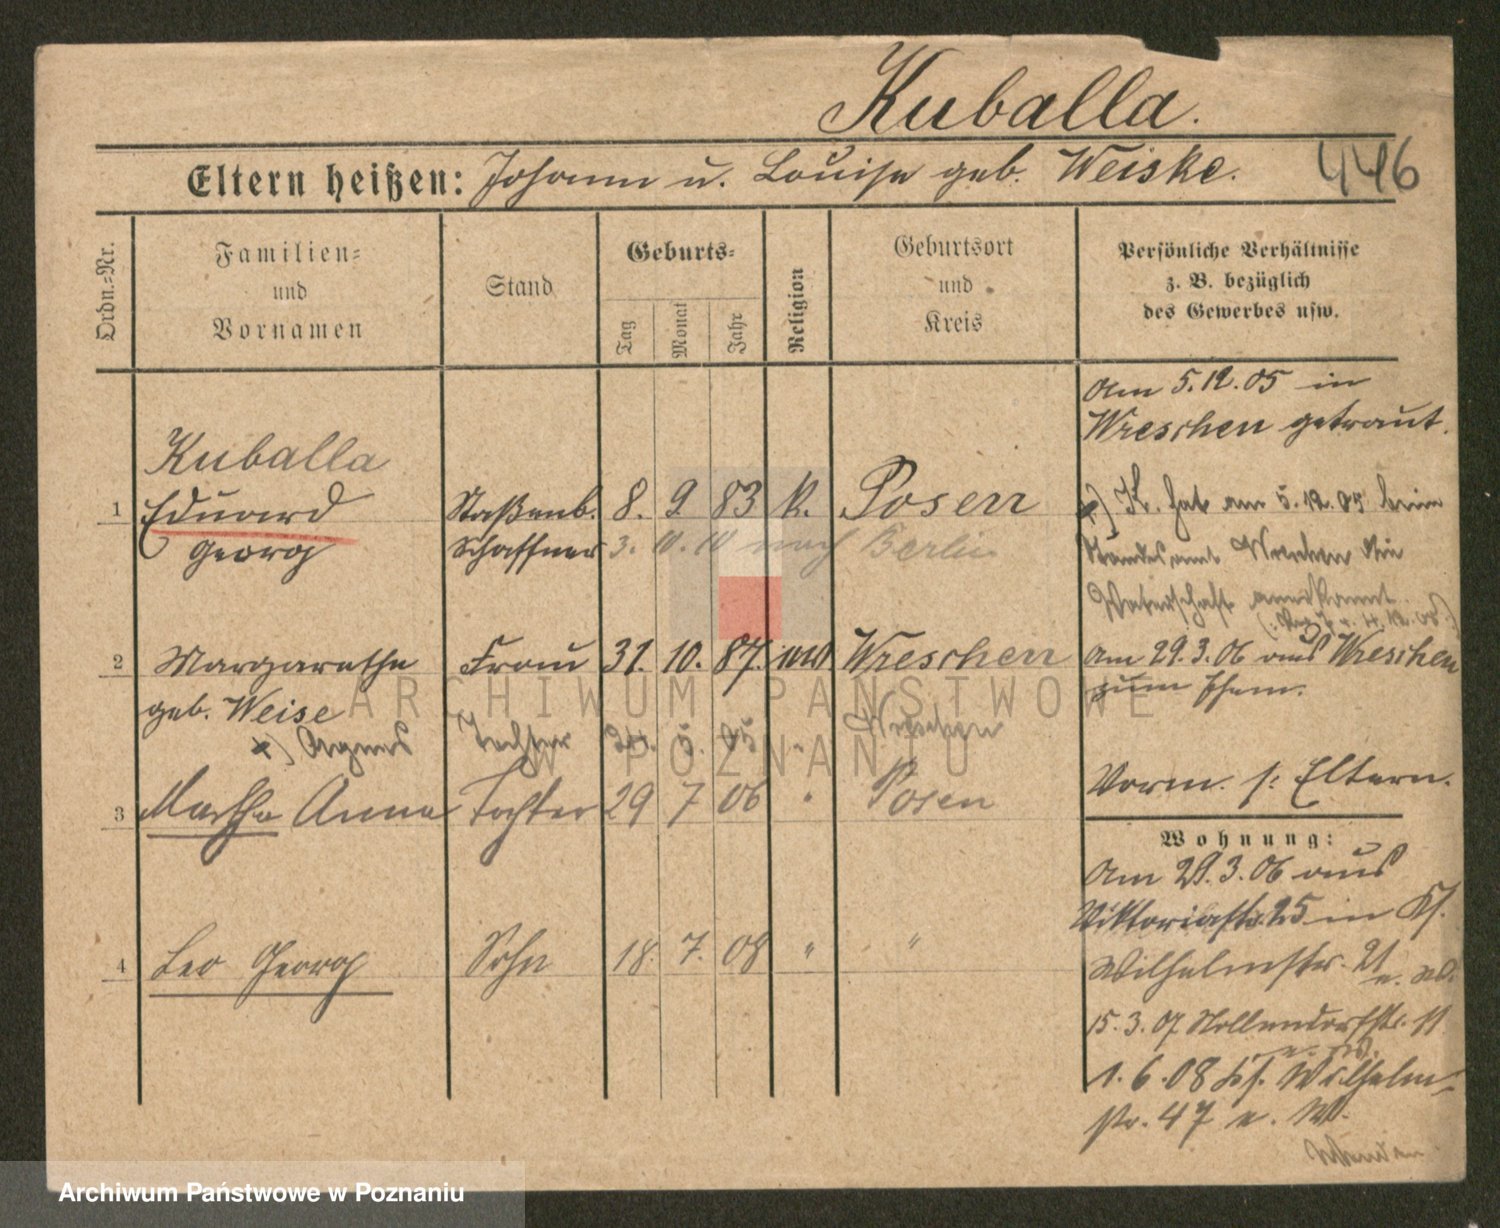 Kuballa.
Eltern heißen: Johann u. Louise geb. Weiske.
446
Ordn.-Nr.
Familien-
und
Vornamen
Stand
Geburts-
Tag
Monat
Jahr
Religion
Geburtsort
und
Kreis
Persönliche Verhältnisse
z. B. bezüglich
des Gewerbes usw.
Am 5.12.05 in
Wreschen getraut.
Kuballa
1 Eduard Staßenb. 8. 9 83 k. Posen
Georg Schaffner 3. 10. 10 nach Berlin
x) K. hat am 5.12.05 beim
Standesamt Wreschen die
Vaterschaft anerkannt.
2 Margarethe Frau 31. 10. 87. Wreschen
geb. Weise
Am 29.3.06 aus Wreschen
zum Ehem.
x) Agnes Tochter 24. 5. 05 " Wreschen
3 Martha Anna Tochter 29 7 06 " Posen
Vorm. s: Eltern.
Wohnung:
Am 29.3.06 aus
Viktoriastr. 25 in
Wilhelmstr. 21
15.3.07 Nollendorfstr. 11
1.6.08 Kf. Wilhelm-
str. 47 n. W.
4 Leo Georg Sohn 18. 7. 08 " "
ARCHIWUM PAŃSTWOWE
W POZNANIU
Archiwum Państwowe w Poznaniu